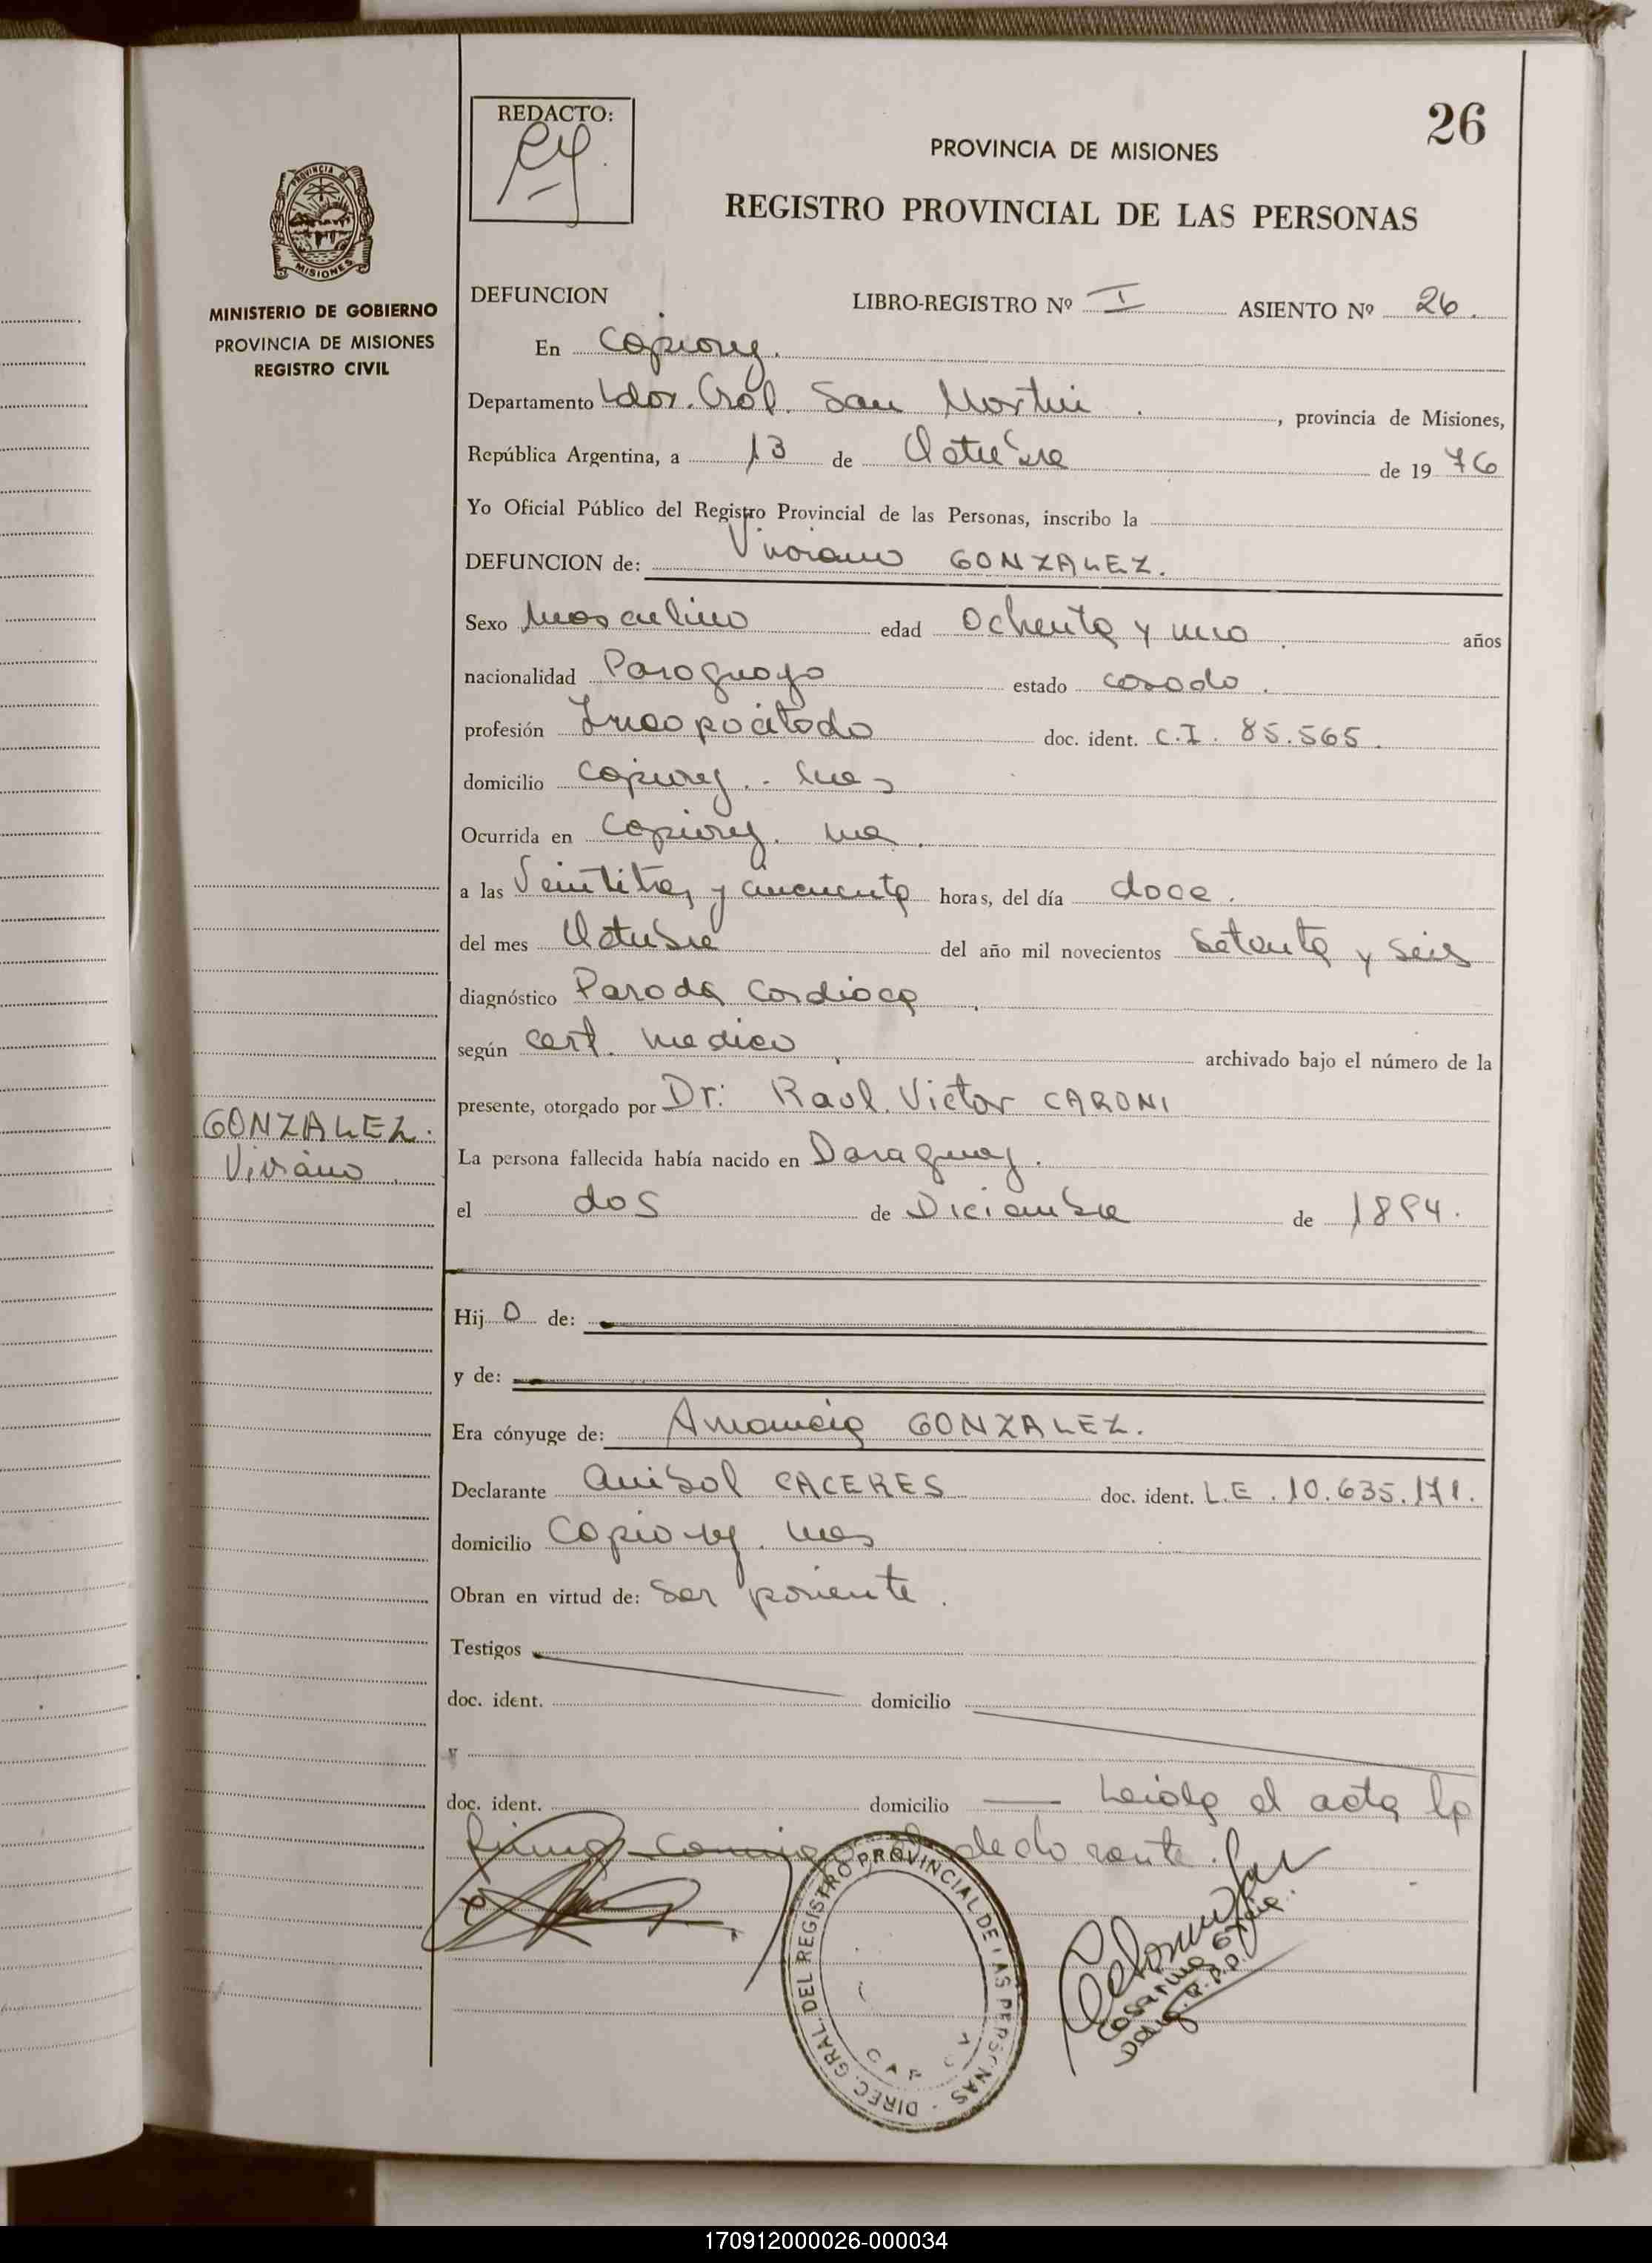 26
REDACTO:
PROVINCIA DE MISIONES
REGISTRO PROVINCIAL DE LAS PERSONAS
PROVINCIA DE
MISIONES
MINISTERIO DE GOBIERNO
PROVINCIA DE MISIONES
REGISTRO CIVIL
DEFUNCION LIBRO-REGISTRO Nº I ASIENTO Nº 26.
En Capiovy.
Departamento Ldor. Gral. San Martin, provincia de Misiones,
República Argentina, a 13 de Octubre de 1976
Yo Oficial Público del Registro Provincial de las Personas, inscribo la
DEFUNCION de: Viviano GONZALEZ.
Sexo Masculino edad Ochenta y uno años
nacionalidad Paraguayo estado casado.
profesión Incapacitado doc. ident. C.I. 85.565.
domicilio Capiovy. Mnes
Ocurrida en Capiovy. Mnes.
a las Veintitres y cincuenta horas, del día doce.
del mes Octubre del año mil novecientos setenta y seis
diagnóstico Parada Cardiaca
según cert. medico archivado bajo el número de la
presente, otorgado por Dr: Raúl Victor CARONI
GONZALEZ.
Viviano
La persona fallecida había nacido en Paraguay.
el dos de Diciembre de 1894.
Hijo de:
y de:
Era cónyuge de: Amancia GONZALEZ.
Declarante Anibal CACERES doc. ident. L.E. 10.635.171.
domicilio Capiovy. Mnes
Obran en virtud de: Ser pariente.
Testigos
doc. ident. domicilio
y
doc. ident. domicilio Leida el acta la
firma conmigo el declarante.
DIREC. GRAL. DEL REGISTRO PROVINCIAL DE LAS PERSONAS
170912000026-000034